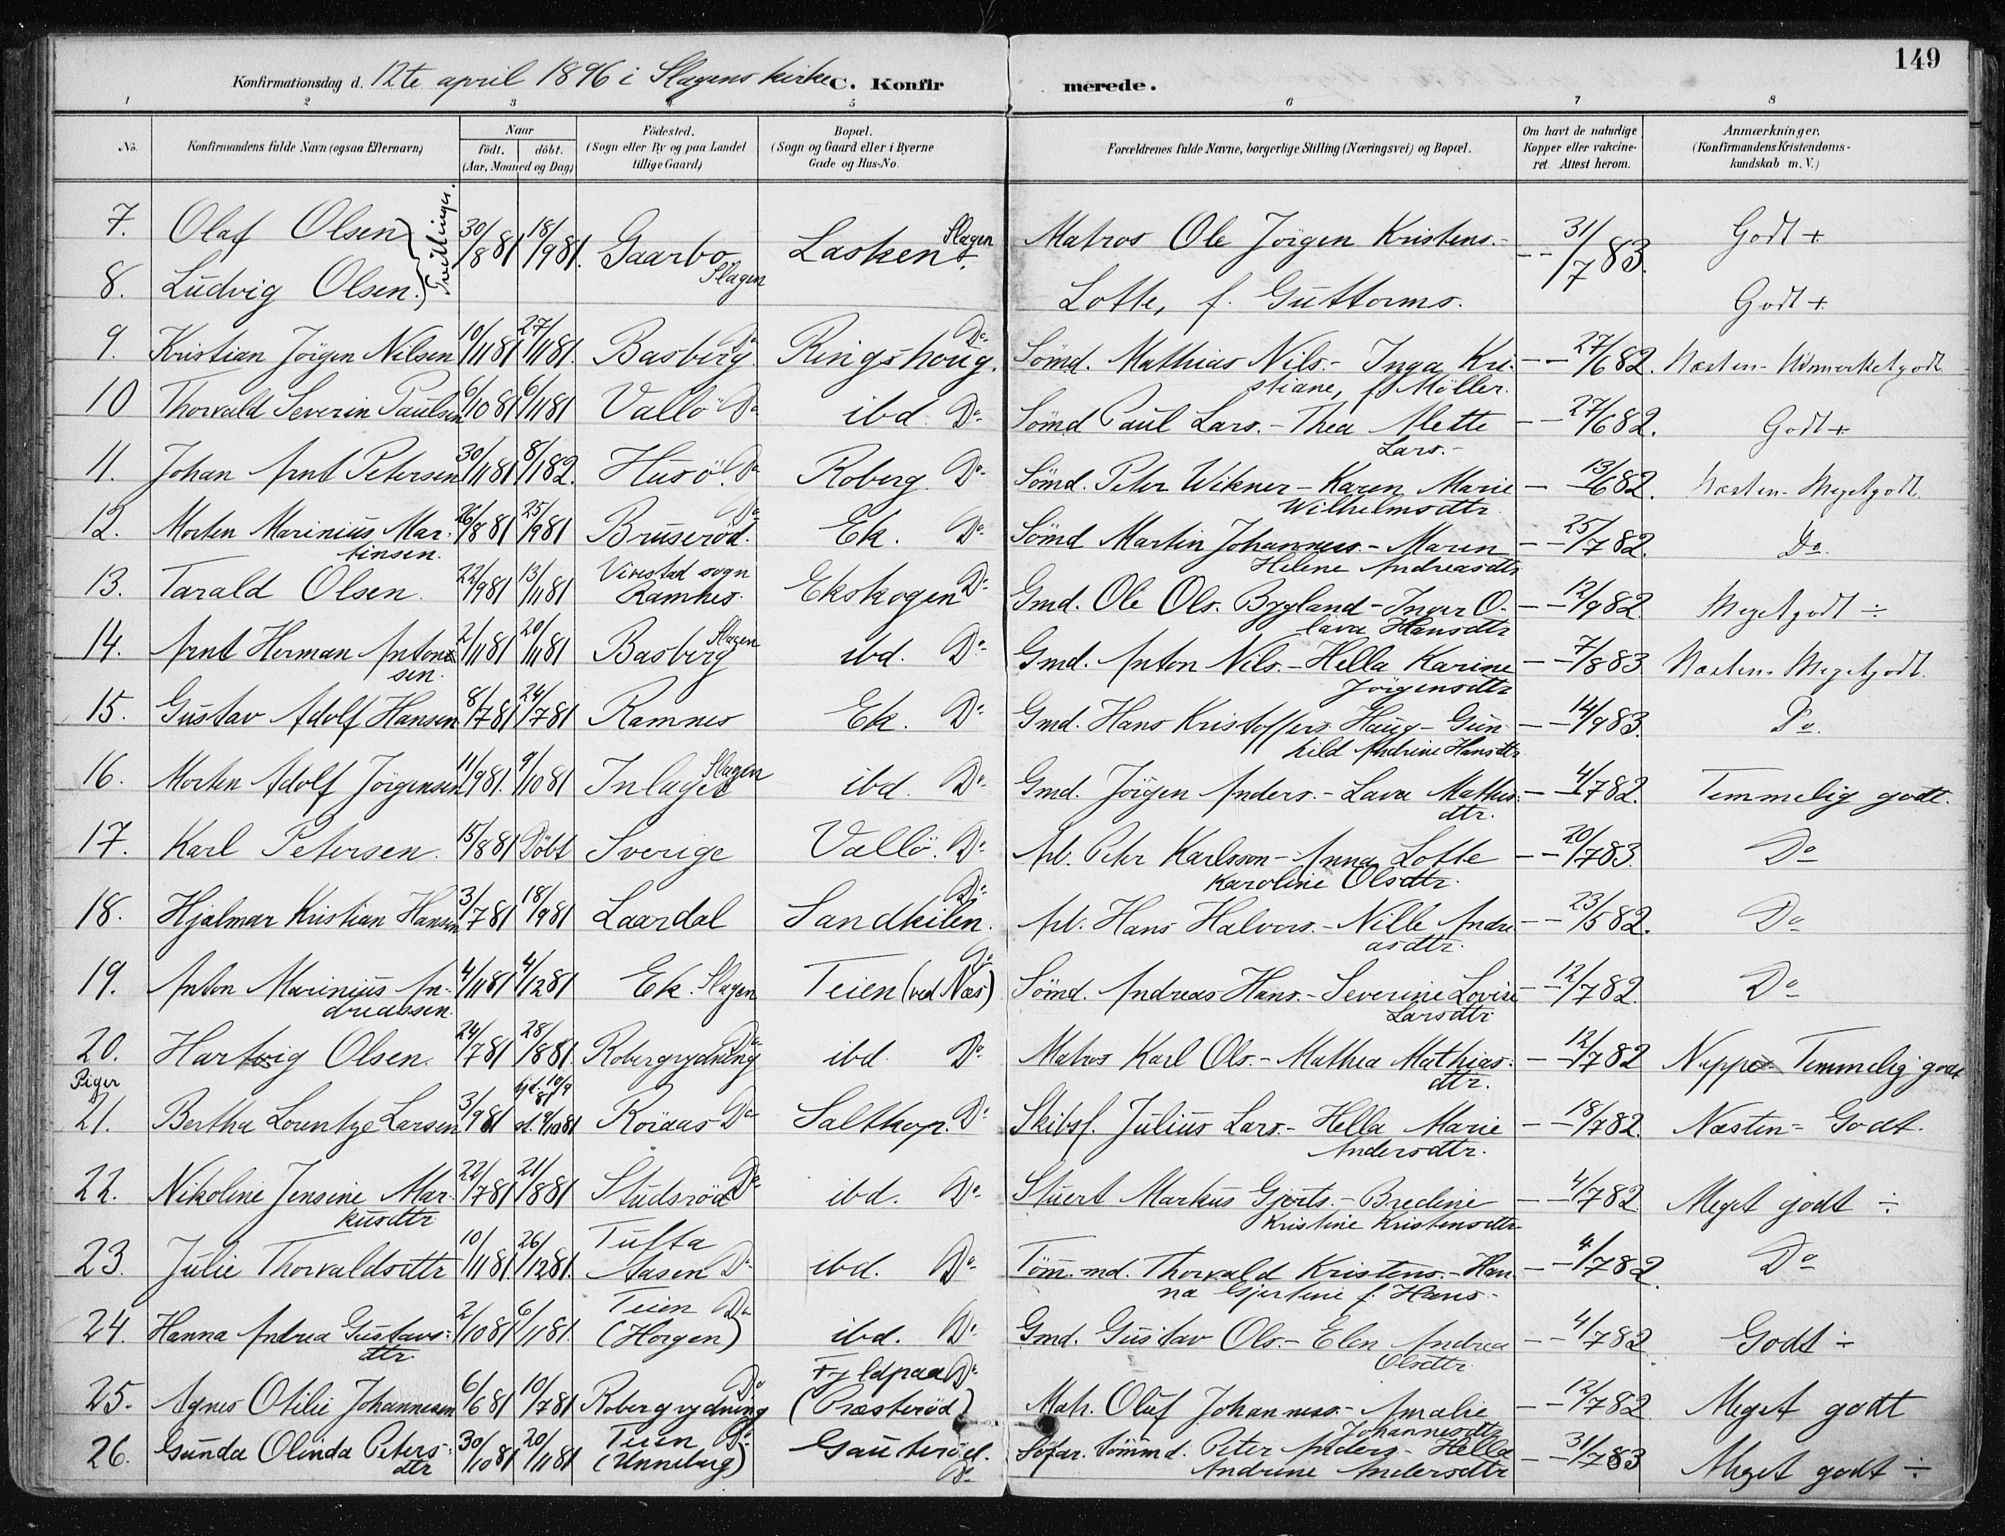 149
Konfirmationsdag d. 12te april 1896 i Slagens kirke C. Konfirmerede.
1 2 3 4 5 6 7 8
No. Konfirmandens fulde Navn (ogsaa Efternavn) Naar født. døbt. (Aar, Maaned og Dag) Födested. (Sogn eller By og paa Landet tillige Gaard) Bopæl. (Sogn og Gaard eller i Byerne Gade og Hus-No. Forældrenes fulde Navne, borgerlige Stilling (Næringsvei) og Bopæl. Om havt de naturlige Kopper eller vakcineret. Attest herom. Anmærkninger. (Konfirmandens Kristendomskundskab m. V.)
7. Olaf Olsen } Tvillinger. 30/8 81 18/9 81. Gaarbo Slagen Lasken Slagen Matros Ole Jörgen Kristens.- -- 31/7 83. Godt +
8. Ludvig Olsen. Lotte, f. Guttorms. Godt +
9. Kristian Jörgen Nilsen 10/11 81 27/11 81. Basberg Do Ringshoug. Do Sömd. Mathias Nils.- Inga Kri- -- 27/6 82. Næsten- Udmerketgodt
stiane, f. Møller.
10 Thorvald Severin Paulsen 6/10 81 6/11 81 Vallö Do ibd. Do Sömd Paul Lars.- Thea Alette -- 27/6 82. Godt +
Lars.-
11. Johan Arnt Petersen 30/11 81 8/1 82. Husö. Do Roberg Do Sömd. Peter Wikner- Karen Marie -- 13/6 82. Næsten- Megetgodt
Wilhelmsdtr
12. Morten Marinius Mar- 26/8 81 25/9 81 Bruseröd. Do Ek. Do Sömd Martin Johanness.- Maren -- 25/7 82. Do
tinsen. Helene Andreasdtr
13. Tarald Olsen. 22/9 81 13/11 81 Vivestad sogn Ramnes. Ekskogen Do Gmd. Ole Ols. Bygland- Inger O- -- 12/9 82. Megetgodt ÷
lava Hansdtr
14. Arnt Herman Anton- 2/11 81 20/11 81 Basberg Slagen ibd. Do Gmd. Anton Nils.- Hella Karine -- 7/8 83. Næsten- Megetgodt.
sen. Jörgensdtr
15. Gustav Adolf Hansen 8/7 81 24/7 81 Ramnes Ek. Do Gmd. Hans Kristoffers Haug- Gun- -- 14/9 83. Do.
hild Andrine Hansdtr
16. Morten Adolf Jörgensen 11/9 81. 9/10 81 Inlaget Slagen ibd. Do Gmd. Jörgen Anders.- Lava Mathis- -- 4/7 82. Temmelig godt.
dtr.
17. Karl Petersen. 15/8 81 Döbt Sverige Vallö. Do Arb. Peter Karlsson- Anna Lotte -- 20/7 83. Do
Karoline Olsdtr.
18. Hjalmar Kristian Hansen 3/7 81 18/9 81 Laardal Sandkilen. Do Arb. Hans Halvors.- Nille Andre- -- 23/5 82. Do
asdtr.
19. Anton Marinius An- 4/11 81 4/12 81 Ek. Slagen Teien (ved Næs) Do Sömd. Andreas Hans.- Severine Lovise -- 12/7 82. Do
dreassen. Larsdtr
20. Hartvig Olsen. 24/7 81 28/8 81. Robergrydning Do ibd. Do Matros Karl Ols.- Mathea Mathias- -- 12/7 82 Neppe Temmelig godt
dtr.
Piger
21. Bertha Lorentze Larsen 3/9 81 hjd. 10/9 81 st. 9/10 81 Röraas Do Saltkop. Do Skibsf. Julius Lars.- Hella Marie -- 18/7 82. Næsten- Godt.
Andersdtr.
22. Nikoline Jensine Mar- 22/7 81 21/8 81 Studsröd Do ibd. Do Stuert Markus Gjerts.- Bredine -- 4/7 82. Meget godt ÷
kusdtr Kristine Kristensdtr
23. Julie Thorvaldsdtr 10/11 81. 26/12 81. Tufta Aasen Do ibd. Do Töm.md. Thorvald Kristens.- Han- -- 4/7 82. Do
na Gjertine f. Hans-
24. Hanna Andrea Gustavs- 2/10 81 6/11 81. Teien Do (Horgen) ibd. Do Gmd. Gustav Ols.- Elen Andrea -- 4/7 82 Godt ÷
dtr. Olsdtr.
25. Agnes Otilie Johannesen 6/6 81 10/7 81 Robergrydning Do Fyldpaa Do (Præsteröd) Matr. Oluf Johanness.- Amalie -- 12/7 82. Meget godt
Johannesdtr
26. Gunda Olinda Peters- 30/10 81 20/11 81 Teien Do (Unneberg) Gauteröd. Do Sofar. Tömmd. Peter Anders- Hella -- 31/7 83 Meget godt ÷
dtr Andrine Andersdtr